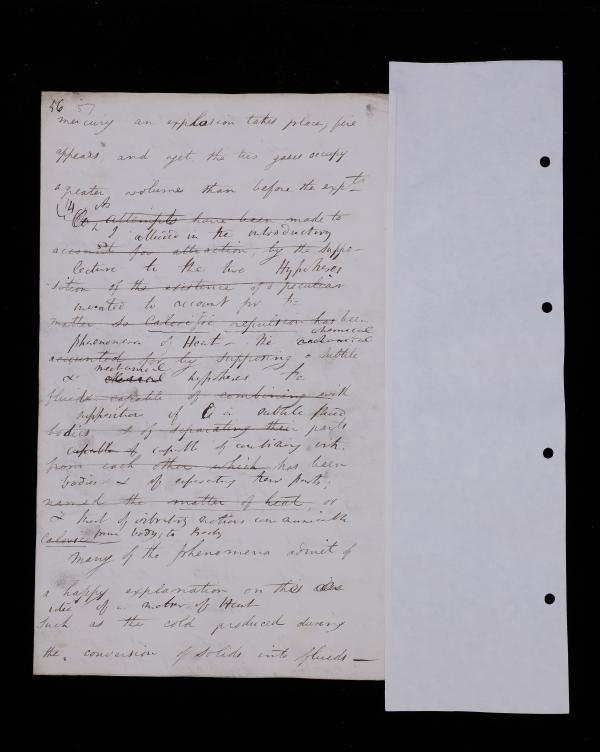 56 57
mercury an explosion takes place, fire
appears, and yet the two gases occupy
a greater volume than before the expt
14 As
attempts have been made to
I alluded in the introductory
account for attraction, by the suppo-
lecture to the two Hypotheses
-sition of the existence of a peculiar
invented to account for the
matter so Calorific repulsion has been
phaenomena of Heat – the chemical
accounted for by supposing a subtile
& mechanical hypotheses the
fluid capable of combining with
supposition of a subtile fluid
bodies & of separating their parts
capable of capable of combining with
from each other which has been
bodies & of separating their parts;
named the matter of heat or
& that of vibratory motions communicable
caloric from body to Body
Many of the phenomena admit of
a happy explanation on this
idea of a matter of Heat
Such as the cold produced during
the conversion of solids into fluids —